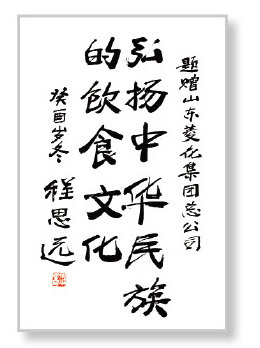 题赠山东菱花集团总公司
弘扬中华民族
的饮食文化
癸酉岁冬
程思远